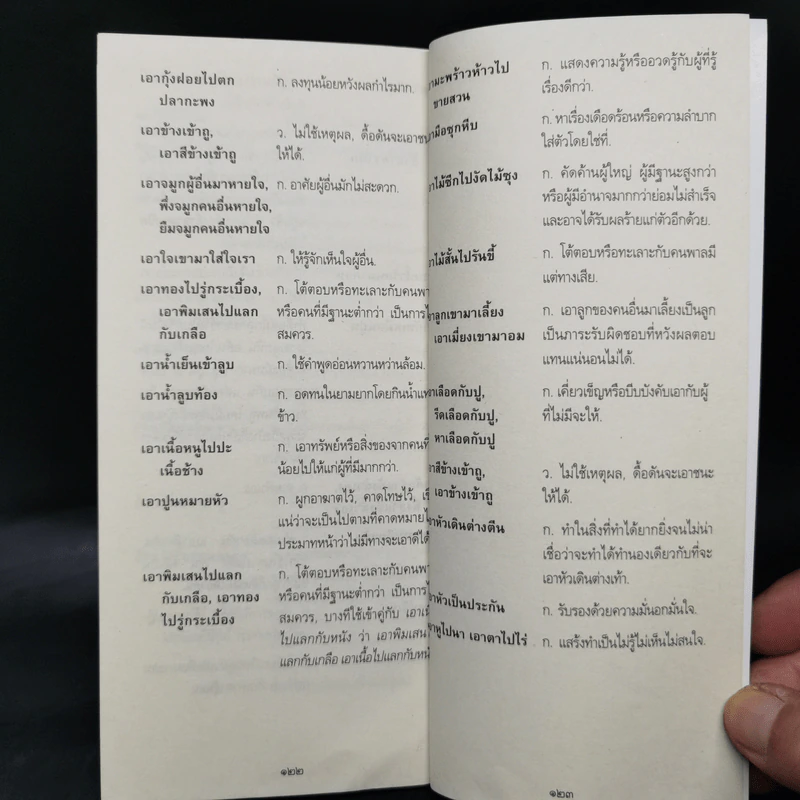 เอากุ้งฝอยไปตก ก. ลงทุนน้อยหวังผลกำไรมาก.
ปลากะพง
เอาข้างเข้าถู, ว. ไม่ใช้เหตุผล, ดื้อดันจะเอาชน
เอาสีข้างเข้าถู ให้ได้.
เอาจมูกผู้อื่นมาหายใจ, ก. อาศัยผู้อื่นมักไม่สะดวก.
พึ่งจมูกคนอื่นหายใจ,
ยืมจมูกคนอื่นหายใจ
เอาใจเขามาใส่ใจเรา ก. ให้รู้จักเห็นใจผู้อื่น.
เอาทองไปรู่กระเบื้อง, ก. โต้ตอบหรือทะเลาะกับคนพาล
เอาพิมเสนไปแลก หรือคนที่มีฐานะต่ำกว่า เป็นการไ
กับเกลือ สมควร.
เอาน้ำเย็นเข้าลูบ ก. ใช้คำพูดอ่อนหวานหว่านล้อม.
เอาน้ำลูบท้อง ก. อดทนในยามยากโดยกินน้ำแท
ข้าว.
เอาเนื้อหนูไปปะ ก. เอาทรัพย์หรือสิ่งของจากคนที่
เนื้อช้าง น้อยไปให้แก่ผู้ที่มีมากกว่า.
เอาปูนหมายหัว ก. ผูกอาฆาตไว้, คาดโทษไว้, เชื
แน่ว่าจะเป็นไปตามที่คาดหมายไ
ประมาทหน้าว่าไม่มีทางจะเอาดีได้
เอาพิมเสนไปแลก ก. โต้ตอบหรือทะเลาะกับคนพา
กับเกลือ, เอาทอง หรือคนที่มีฐานะต่ำกว่า เป็นการไ
ไปรู่กระเบื้อง สมควร, บางทีใช้เข้าคู่กับ เอาเนื้
ไปแลกกับหนัง ว่า เอาพิมเสน
แลกกับเกลือ เอาเนื้อไปแลกกับหนั
๑๒๒
ามะพร้าวห้าวไป ก. แสดงความรู้หรืออวดรู้กับผู้ที่รู้
ขายสวน เรื่องดีกว่า.
ามือซุกหีบ ก. หาเรื่องเดือดร้อนหรือความลำบาก
ใส่ตัวโดยใช่ที่.
าไม้ซีกไปงัดไม้ซุง ก. คัดค้านผู้ใหญ่ ผู้มีฐานะสูงกว่า
หรือผู้มีอำนาจมากกว่าย่อมไม่สำเร็จ
และอาจได้รับผลร้ายแก่ตัวอีกด้วย.
าไม้สั้นไปรันขี้ ก. โต้ตอบหรือทะเลาะกับคนพาลมี
แต่ทางเสีย.
าลูกเขามาเลี้ยง ก. เอาลูกของคนอื่นมาเลี้ยงเป็นลูก
เอาเมี่ยงเขามาอม เป็นภาระรับผิดชอบที่หวังผลตอบ
แทนแน่นอนไม่ได้.
าเลือดกับปู, ก. เคี่ยวเข็ญหรือบีบบังคับเอากับผู้
รีดเลือดกับปู, ที่ไม่มีจะให้.
หาเลือดกับปู
าสีข้างเข้าถู, ว. ไม่ใช้เหตุผล, ดื้อดันจะเอาชนะ
เอาข้างเข้าถู ให้ได้.
าหัวเดินต่างตีน ก. ทำในสิ่งที่ทำได้ยากยิ่งจนไม่น่า
เชื่อว่าจะทำได้ทำนองเดียวกับที่จะ
เอาหัวเดินต่างเท้า.
าหัวเป็นประกัน ก. รับรองด้วยความมั่นอกมั่นใจ.
าหูไปนา เอาตาไปไร่ ก. แสร้งทำเป็นไม่รู้ไม่เห็นไม่สนใจ.
๑๒๓